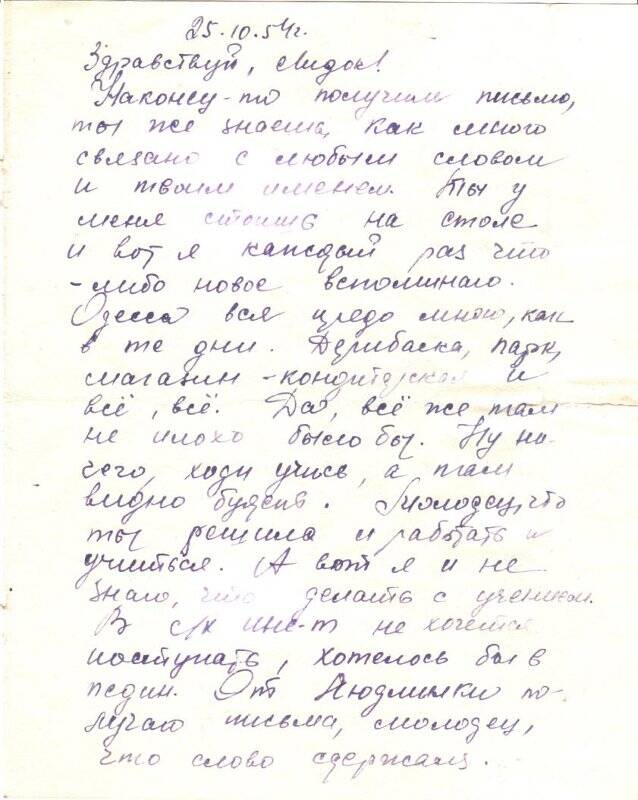 25.10.54г.
Здравствуй, Лидок!
Наконец-то получила письмо,
ты же знаешь, как много
связано с любым словом
и твоим именем. Ты у
меня стоишь на столе
и вот я каждый раз что
-либо новое вспоминаю.
Одесса вся предо мною, как
в те дни. Дерибаска, парк,
магазин-кондитерская и
всё, всё. Да, всё же там
не плохо было бы. Ну ни-
чего, ходи учись, а там
видно будет. Молодец, что
ты решила и работать и
учиться. А вот я и не
знаю, что делать с учением.
В с/х инс-т не хочется
поступать, хотелось бы в
педин. От Людмилки по-
лучаю письма, молодец,
что слово сдержала.